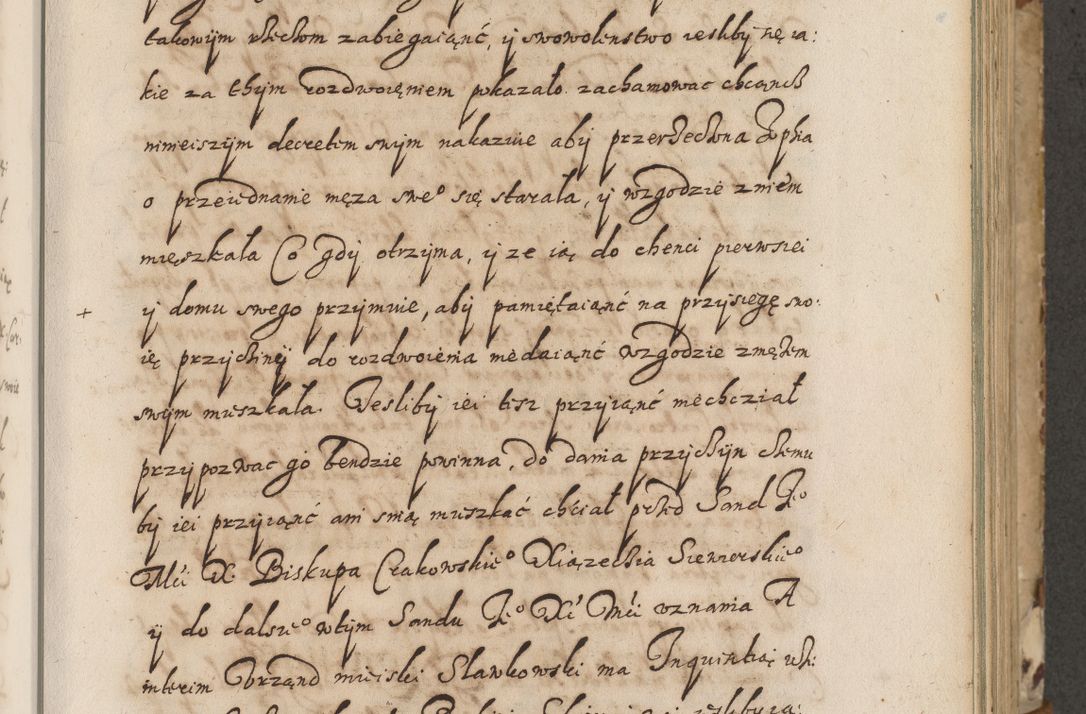 takowym rzechom zabiegaiąnć, ij swowolenstwo iesliby się ia:
kie za thym rozdwoięniem pokazało. zachamowac chcąnch
ninieiszym decretem swym nakazuie abij przerzechona Zophia
o przeiednanie męza swe° się starała, ij wzgodzie zniem
mięszkała Co gdij otrzijma, ij ze ią do chenci pierwsiei
ij domu swego przijmuie, abij pamiętaiąnć na przijsięgę swo:
ię przijchinij do rozdwoienia niedaiąnć wzgodzie zmęzem
swym mieszkała. Iesliby iei tesz przyiąnć niechcział
przypozwac go bendzie powinna, do dania przijchijn chemu
by iei przyiąnć ani znią mieszkać chciał przed Sand Je°
Mci X. Biskupa Crakowskie° Xiązechia Siewierskie°
ij do dalsze° wtijm Sandu Je° Xi Mci uznania A
interim Vrząnd mieiski Slawkowski ma Inquisitią